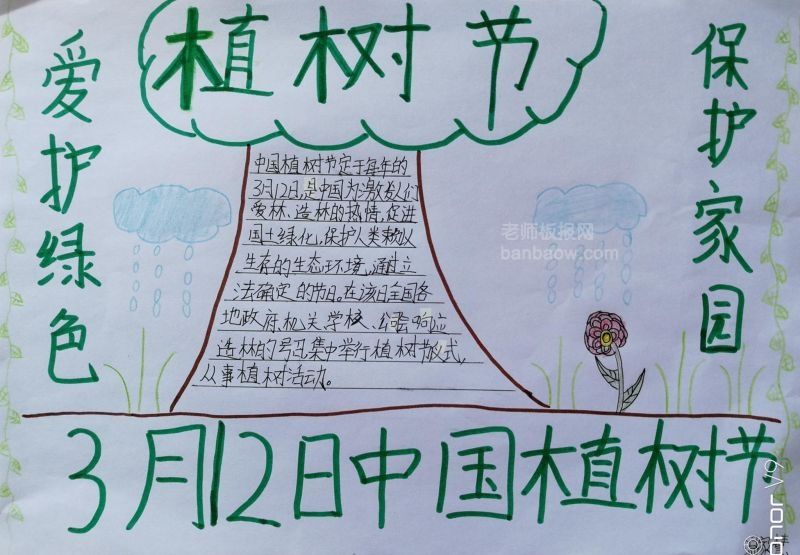 植树节
爱护绿色
保护家园
中国植树节定于每年的
3月12日,是中国为激发人们
爱林、造林的热情,促进
国土绿化,保护人类赖以
生存的生态环境,通过立
法确定的节日。在该日全国各
地政府、机关、学校、公会响应
造林的号召集中举行植树节仪式,
从事植树活动。
老师板报网
banbaow.com
3月12日中国植树节
onor V9